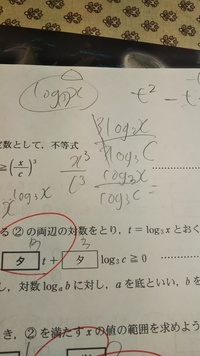 log₃x
t² - t
数として，不等式
≧(x/c)³
x³/c³
3log₃x
3log₃C
log₃x
log₃C =
x^log₃x
る ② の両辺の対数をとり，t = log₃x とおく
タ t + タ log₃c ≧ 0
し，対数 logₐb に対し，a を底といい，b を
き，② を満たす x の値の範囲を求めよう